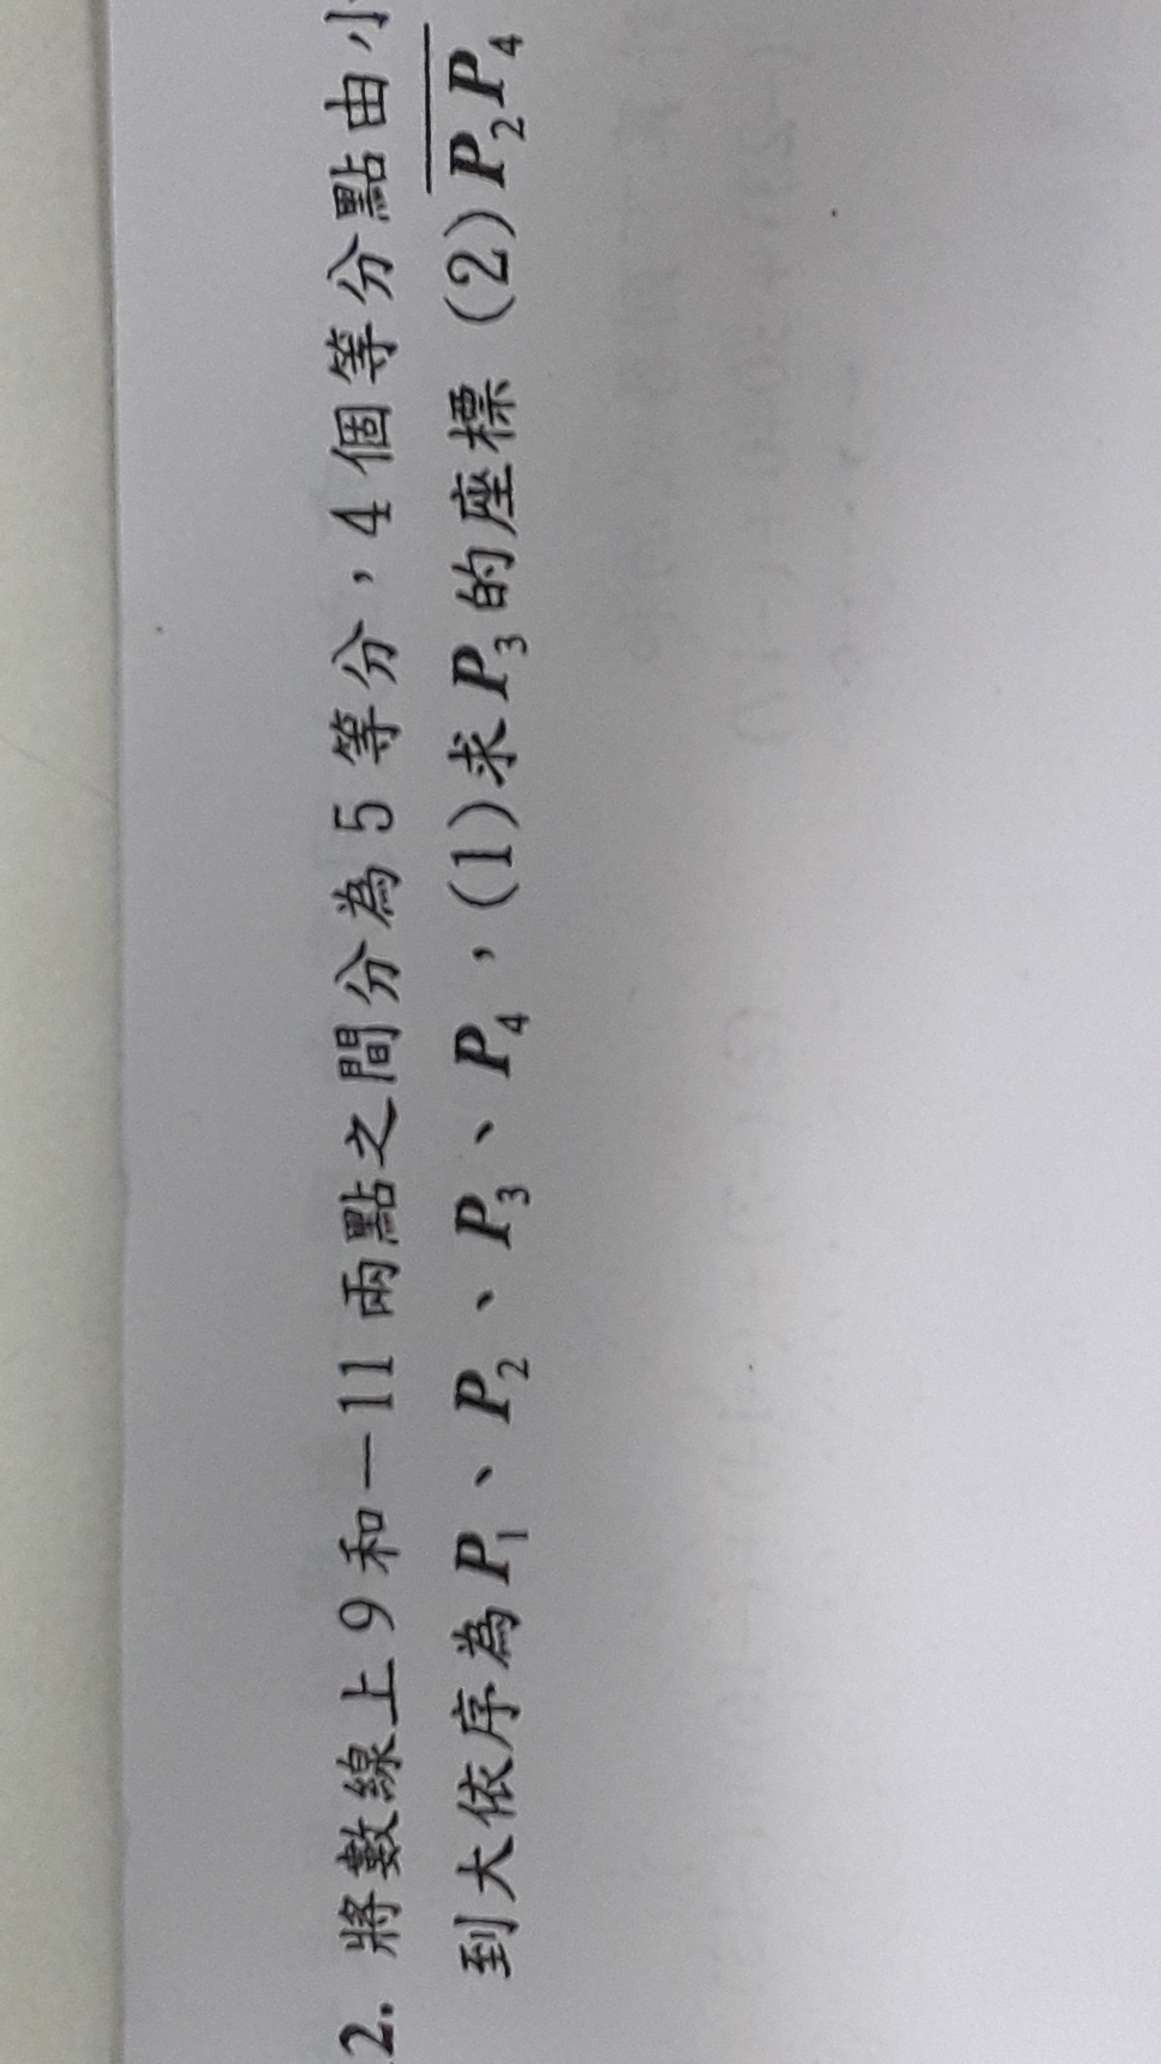 2. 將數線上 9 和－11 兩點之間分為 5 等分，4 個等分點由小
到大依序為 P₁、P₂、P₃、P₄，(1)求 P₃ 的座標 (2) P₂P₄